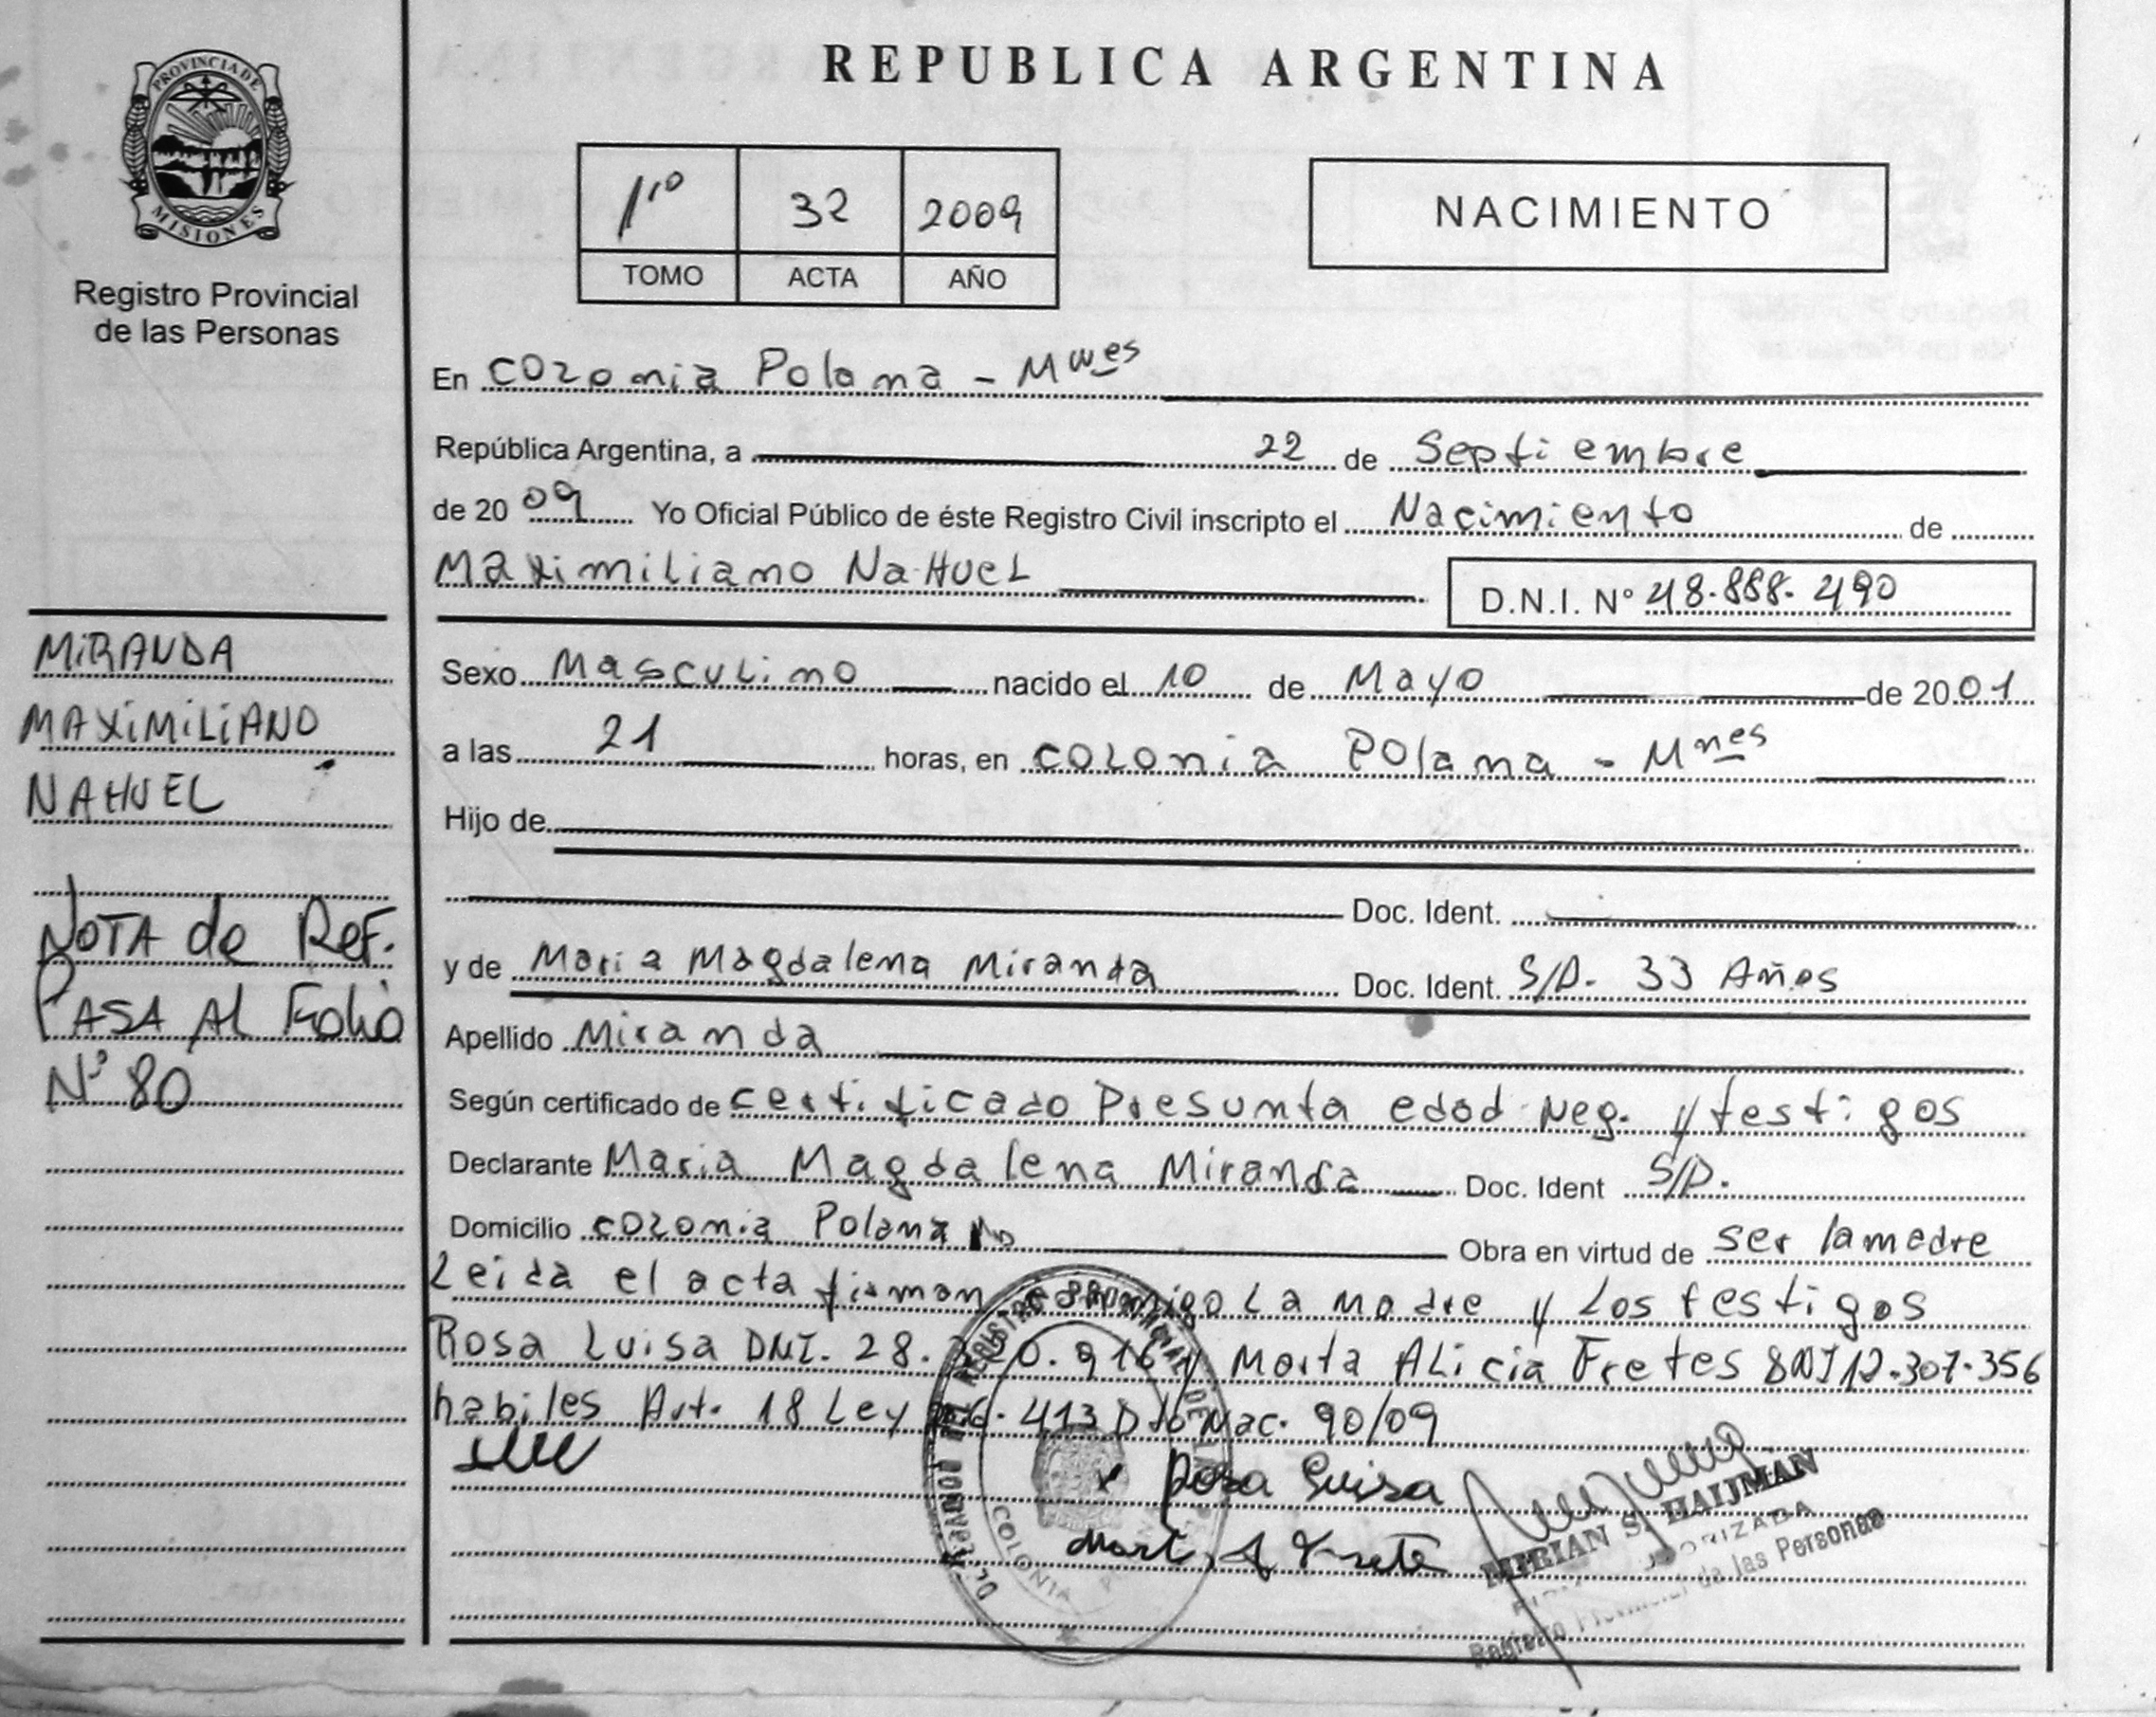 PROVINCIA DE
MISIONES
Registro Provincial
de las Personas
REPUBLICA ARGENTINA
1º 32 2009
TOMO ACTA AÑO
NACIMIENTO
En Colonia Polana - Mnes
República Argentina, a 22 de Septiembre
de 2009 Yo Oficial Público de éste Registro Civil inscripto el Nacimiento de
Maximiliano NaHuel D.N.I. Nº 48.888.490
MiRANDA
MAXiMiLiANO
NAHUEL
Sexo Masculino nacido el 10 de Mayo de 2001
a las 21 horas, en Colonia Polana - Mnes
Hijo de
Doc. Ident.
y de Maria Magdalena Miranda Doc. Ident. S/D. 33 Años
Apellido Miranda
NOTA de Ref.
PASA Al Folio
Nº 80
Según certificado de certificado Presunta edad Neg. y testigos
Declarante Maria Magdalena Miranda Doc. Ident S/D.
Domicilio Colonia Polana Obra en virtud de ser la madre
Leida el acta firman La madre y Los testigos
Rosa Luisa DNI. 28. y Marta ALicia Fretes DNI 12.307.356
habiles Art. 18 Ley 413 Dto Nac. 90/09
Rosa Luisa
MIRIAN S. HAIJMAN
Registro Provincial de las Personas
COLONIA